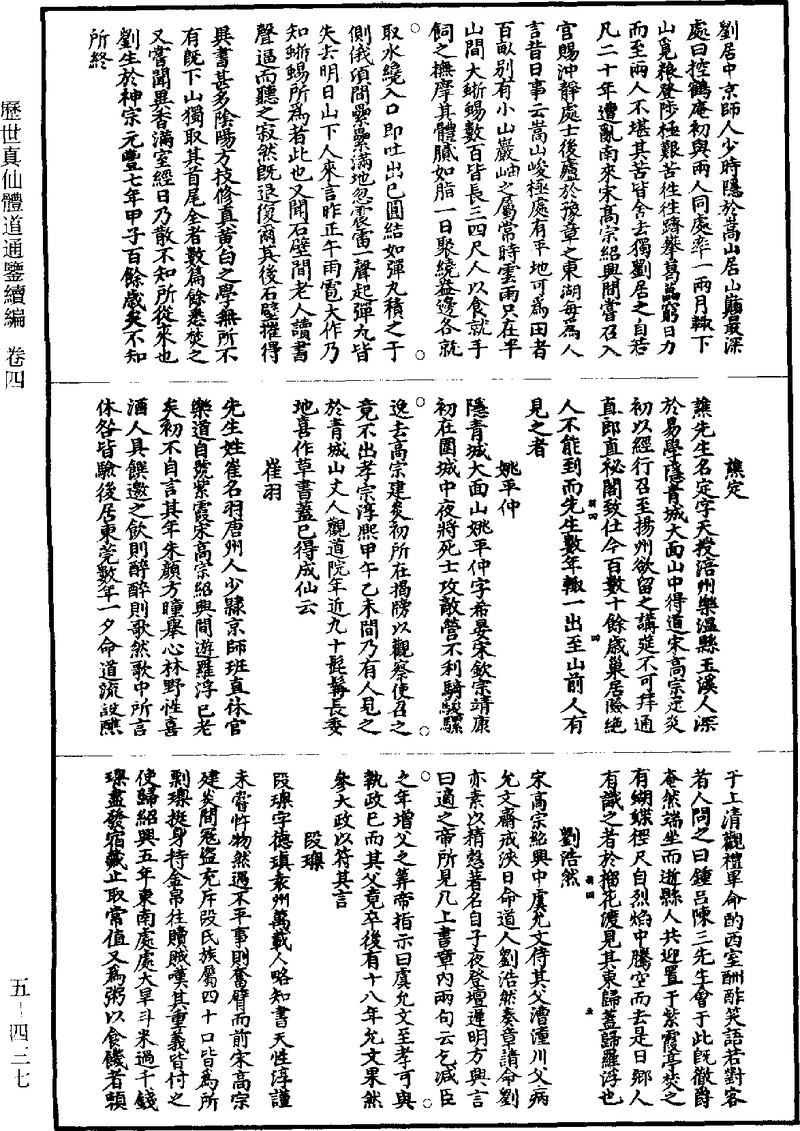 歷世真仙體道通鑒續編 卷四
劉居中京師人少時隱於嵩山居山巔最深
處曰控鶴庵初與兩人同處率一兩月輒下
山覓粮登陟極艱苦往往躋攀葛藟窮日力
而至兩人不堪其苦皆舍去獨劉居之自若
凡二十年遭亂南來宋高宗紹興間嘗召入
宮賜沖靜處士後廬於豫章之東湖每為人
言昔日事云嵩山峻極處有平地可為田者
百畝別有小山巖岫之屬常時雲雨只在半
山間大蜥蜴數百皆長三四尺人以食就手
飼之撫摩其體膩如脂一日聚繞盆邊各就
取水纔入口即吐出已圓結如彈丸積之于
側俄頃間纍纍滿地忽震雷一聲起彈丸皆
失去明日山下人來言昨正午雨雹大作乃
知蜥蜴所為者此也又聞石壁間老人讀書
聲逼而聽之寂然既退復爾其後石壁摧得
異書甚多陰陽方技修真黃白之學無所不
有既下山獨取其首尾全者數篇餘悉焚之
又嘗聞異香滿室經日乃散不知所從來也
劉生於神宗元豐七年甲子百餘歲矣不知
所終
譙定
譙先生名定字天授涪州樂溫縣玉溪人深
於易學隱青城大面山中得道宋高宗建炎
初以經行召至揚州欲留之講筵不可拜通
直郎直祕閣致仕今百數十餘歲巢居險絶
人不能到而先生數年輒一出至山前人有
見之者
姚平仲
隱青城大面山姚平仲字希晏宋欽宗靖康
初在圍城中夜將死士攻敵營不利騎駿騾
逸去高宗建炎初所在揭牓以觀察使召之
竟不出孝宗淳熙甲午乙未間乃有人見之
於青城山丈人觀道院年近九十髭髯長委
地喜作草書蓋已得成仙云
崔羽
先生姓崔名羽唐州人少隸京師班直休官
樂道自號紫霞宋高宗紹興間遊羅浮已老
矣初不自言其年朱顏方瞳舉心林野性喜
酒人具饌邀之飲則醉醉則歌然歌中所言
休咎皆驗後居東莞數年一夕命道流設醮
于上清觀禮畢命酌西室酬酢笑語若對客
若人問之曰鍾呂陳三先生會于此既徹爵
奄然端坐而逝縣人共迎置于紫霞亭焚之
有蝴蝶徑尺自烈焰中騰空而去是日鄉人
有識之者於榴花渡見其東歸蓋歸羅浮也
劉浩然
宋高宗紹興中虞允文侍其父漕潼川父病
允文齋戒浹日命道人劉浩然奏章請命劉
亦素以精慤著名自子夜登壇遲明方興言
曰適之帝所見几上書章內兩句云乞減臣
之年增父之筭帝指示曰虞允文至孝可與
執政已而其父竟卒後有十八年允文果然
參大政以符其言
段璪
段璪字德瑱袁州萬載人略知書天性淳謹
未嘗忤物然遇不平事則奮臂而前宋高宗
建炎間冦盜充斥段氏族屬四十口皆為所
剽璪挺身持金帛往贖賊嘆其重義皆付之
使歸紹興五年東南處處大旱斗米過千錢
璪盡發宿藏止取常值又為粥以食饑者頼
五-四三七